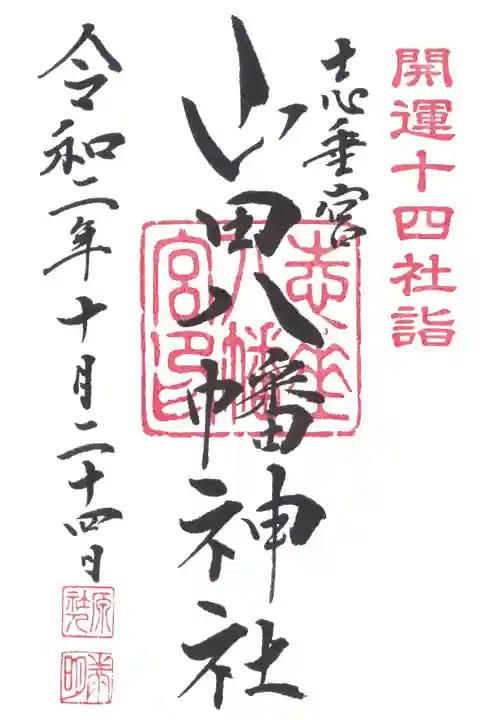 開運十四社詣
志垂宮
山田八幡神社
志垂
八幡
宮印
令和二年十月二十四日